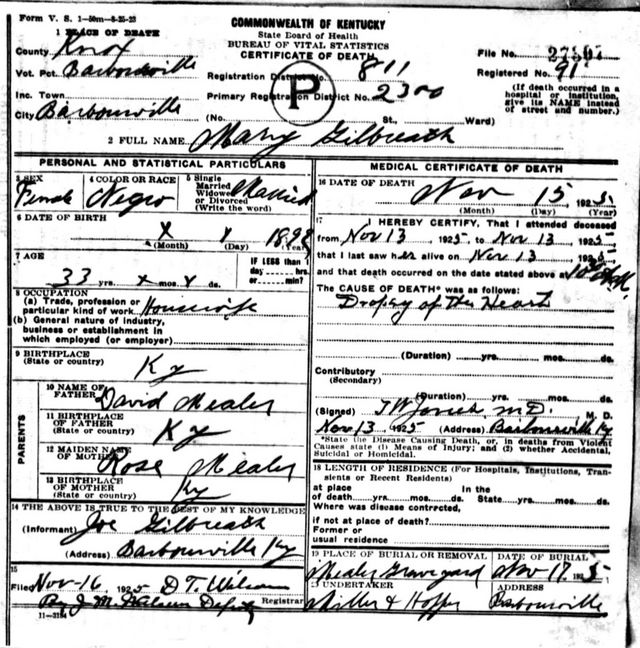 Form V. S. 1—50m—8-25-23
COMMONWEALTH OF KENTUCKY
State Board of Health
BUREAU OF VITAL STATISTICS
CERTIFICATE OF DEATH
1 PLACE OF DEATH
County Knox
Vot. Pct. Barbourville
Inc. Town
City Barbourville
Registration District No. 811
Primary Registration District No. 2300
(No. St., Ward)
P
File No.
Registered No. 91
(If death occurred in a hospital or institution, give its NAME instead of street and number.)
2 FULL NAME Mary Gilbreath
PERSONAL AND STATISTICAL PARTICULARS
3 SEX
Female
4 COLOR OR RACE
Negro
5 Single
Married
Widowed
or Divorced
(Write the word)
Married
6 DATE OF BIRTH
x x 189
(Month) (Day) (Year)
7 AGE
33 yrs. x mos. x ds.
IF LESS than 1
day hrs.
or min.?
8 OCCUPATION
(a) Trade, profession or
particular kind of work Housewife
(b) General nature of industry,
business or establishment in
which employed (or employer)
9 BIRTHPLACE
(State or country) Ky
PARENTS
10 NAME OF
FATHER David Mealer
11 BIRTHPLACE
OF FATHER
(State or country) Ky
12 MAIDEN NAME
OF MOTHER Rose Mealer
13 BIRTHPLACE
OF MOTHER
(State or country) Ky
14 THE ABOVE IS TRUE TO THE BEST OF MY KNOWLEDGE
(Informant) Joe Gilbreath
(Address) Barbourville Ky
15
Filed Nov-16, 1925 D T. Wilson
By J. M. Wilson Deputy Registrar
11—3184
MEDICAL CERTIFICATE OF DEATH
16 DATE OF DEATH
Nov 15 1925
(Month) (Day) (Year)
17 I HEREBY CERTIFY, That I attended deceased
from Nov 13, 1925, to Nov 13, 1925
that I last saw her alive on Nov 13, 1925
and that death occurred on the date stated above at
The CAUSE OF DEATH* was as follows:
Dropsy of the Heart
(Duration) yrs. mos. ds.
Contributory
(Secondary)
(Duration) yrs. mos. ds.
(Signed) M.D. M. D.
Nov 13, 1925 (Address) Barbourville Ky
*State the Disease Causing Death, or, in deaths from Violent
Causes state (1) Means of Injury; and (2) whether Accidental,
Suicidal or Homicidal.
18 LENGTH OF RESIDENCE (For Hospitals, Institutions, Transients or Recent Residents)
at place In the
of death yrs. mos. ds. State yrs. mos. ds.
Where was disease contracted,
if not at place of death?
Former or
usual residence
19 PLACE OF BURIAL OR REMOVAL
Mealer Graveyard
DATE OF BURIAL
Nov 17, 1925
UNDERTAKER
Miller & Hopper
ADDRESS
Barbourville